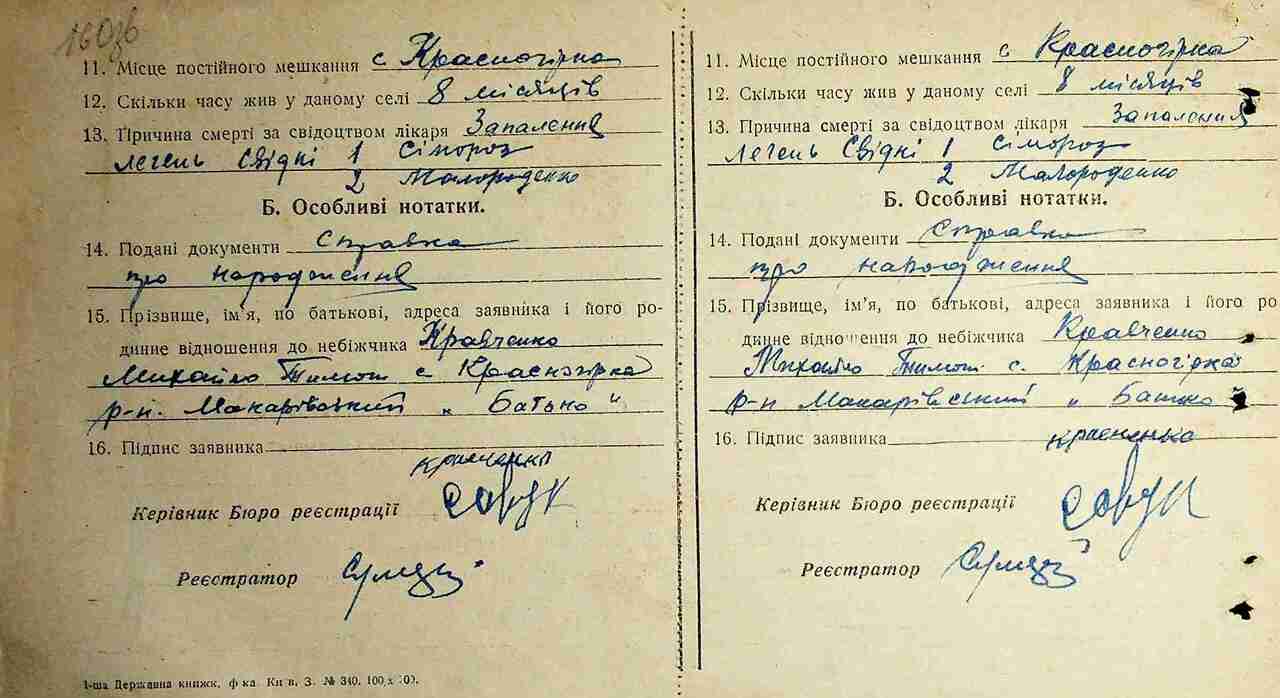 11. Місце постійного мешкання с Красногірка
12. Скільки часу жив у даному селі 8 місяців
13. Причина смерті за свідоцтвом лікаря Запалення
легень Свідкі 1 Сімороз
2 Малороденко
Б. Особливі нотатки.
14. Подані документи Справка
про народження
15. Прізвище, ім'я, по батькові, адреса заявника і його ро-
динне відношення до небіжчика Кравченко
Михайло Тимот с Красногірка
р-н. Макарівський „ Батько "
16. Підпис заявника
Керівник Бюро реєстрації
Реєстратор
1-ша Державна книжк. ф-ка. Київ. З. № 340. 100
11. Місце постійного мешкання с Красногірка
12. Скільки часу жив у даному селі 8 місяців
13. Причина смерті за свідоцтвом лікаря Запалення
легень Свідкі 1 Сімороз
2 Малороденко
Б. Особливі нотатки.
14. Подані документи Справка
про народження
15. Прізвище, ім'я, по батькові, адреса заявника і його ро
динне відношення до небіжчика Кравченко
Михайло Тимот с. Красногірка
р-н Макарівський „ Батько
16. Підпис заявника
Керівник Бюро реєстрації
Реєстратор